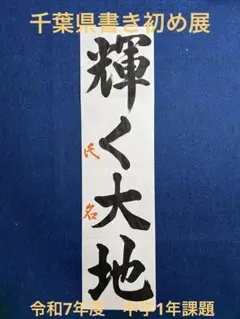 千葉県書き初め展
輝く大地
氏名
令和7年度 中学1年課題